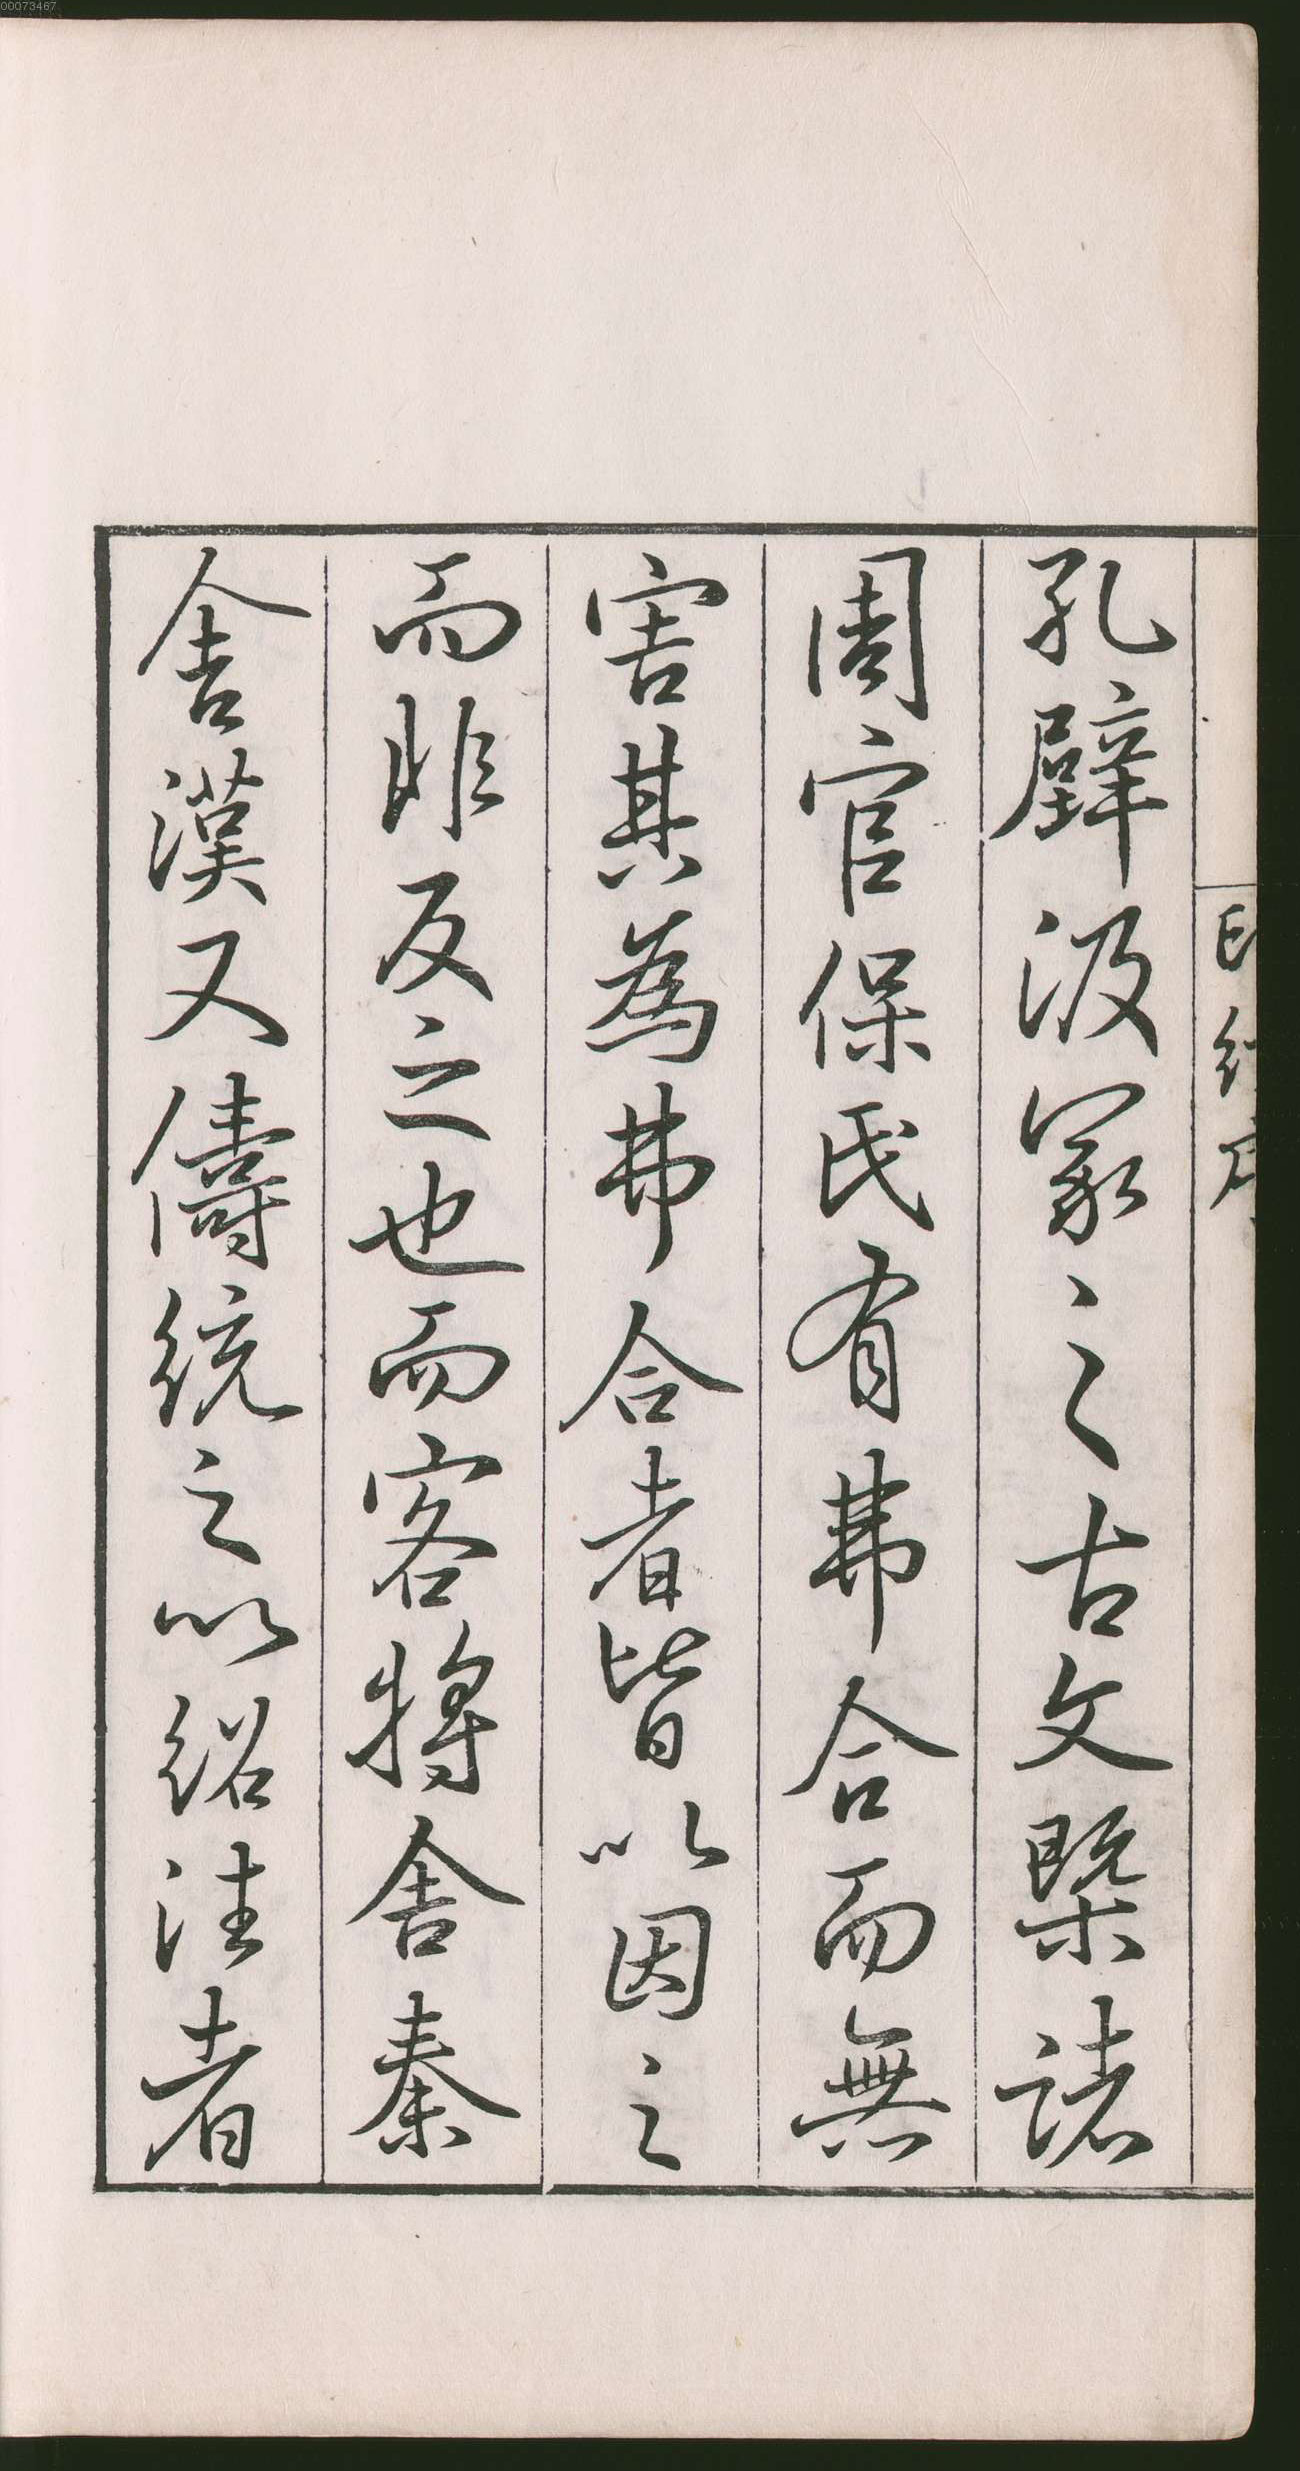 00073467
孔壁汲冢之古文槩諸
周官保氏有弗合而無
害其為弗合者皆以因之
而非反之也而客將舍秦
舍漢又儔統之以紹往者